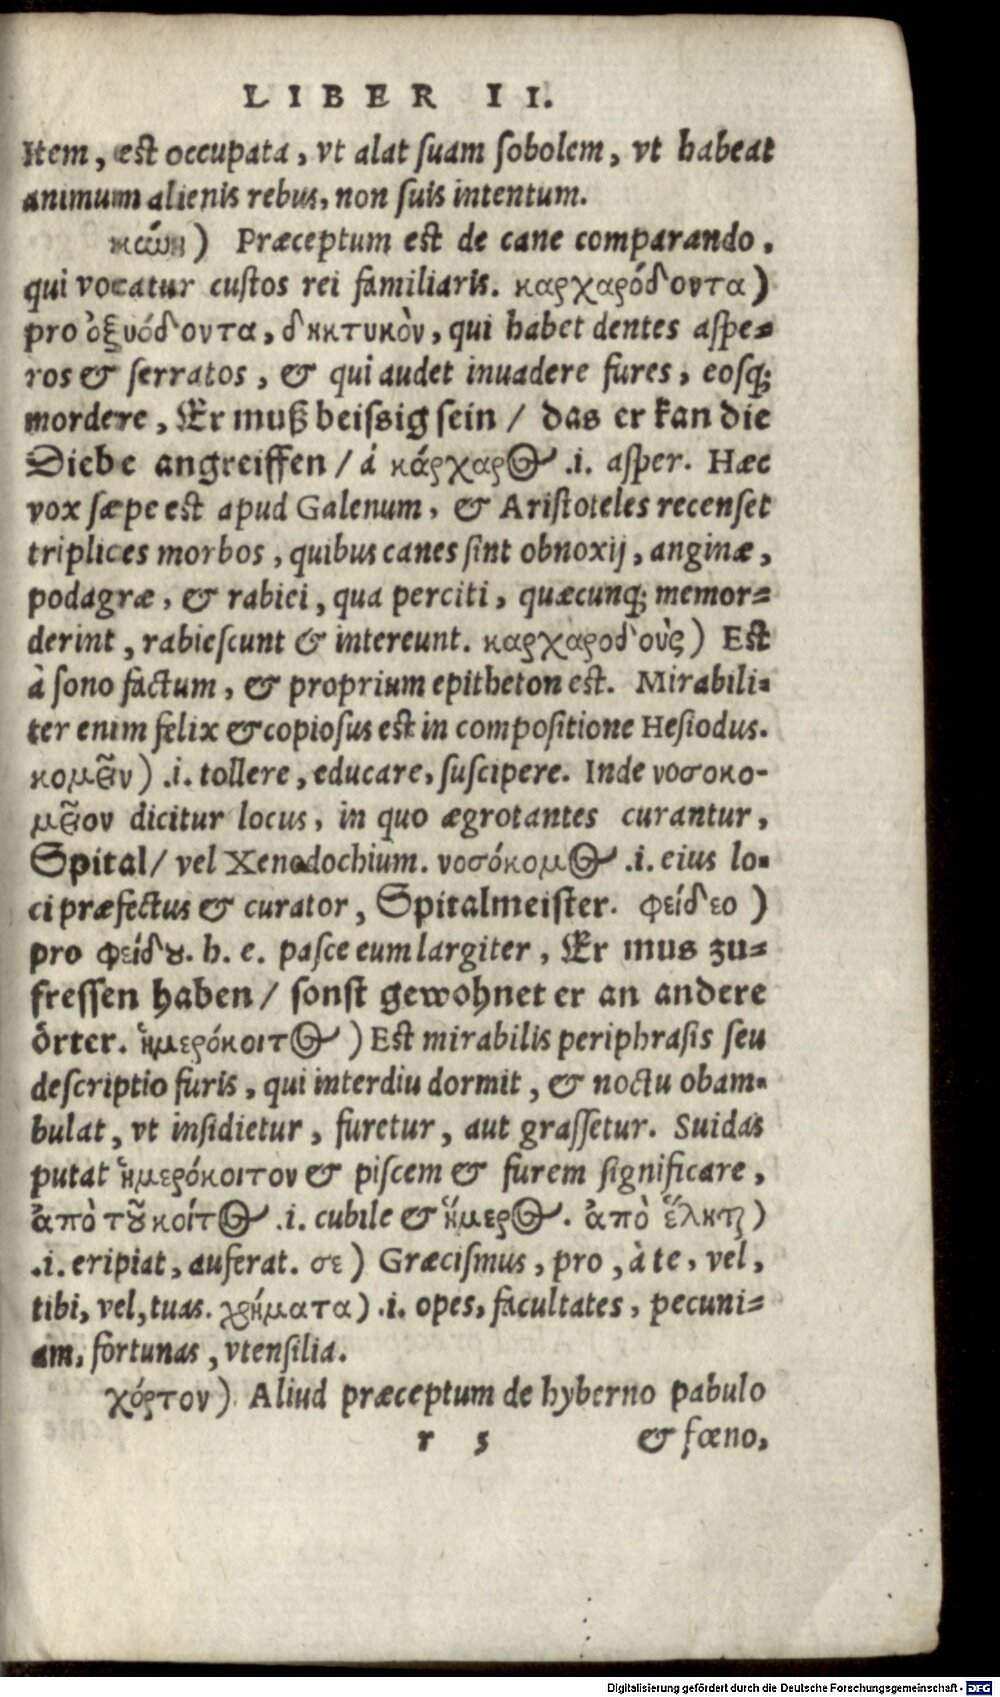 LIBER II.
Item, est occupata, vt alat suam sobolem, vt habeat
animum alienis rebus, non suis intentum.
) Præceptum est de cane comparando,
qui vocatur custos rei familiaris. καρχαρόδοντα)
pro ὀξυόδοντα, δηκτικὸν, qui habet dentes aspe=
ros & serratos, & qui audet inuadere fures, eosq;
mordere, Er muß beissig sein / das er kan die
Diebe angreiffen / á κάρχαρος .i. asper. Hæc
vox sæpe est apud Galenum, & Aristoteles recenset
triplices morbos, quibus canes sint obnoxij, anginæ,
podagræ, & rabiei, qua perciti, quæcunq; memor=
derint, rabiescunt & intereunt. καρχαροδοὺς) Est
à sono factum, & proprium epitheton est. Mirabili=
ter enim felix & copiosus est in compositione Hesiodus.
κομεῖν) .i. tollere, educare, suscipere. Inde νοσοκο-
μεῖον dicitur locus, in quo ægrotantes curantur,
Spital/ vel Xenodochium. νοσόκομος .i. eius lo=
ci præfectus & curator, Spitalmeister. φείδεο )
pro φείδου. h. e. pasce eum largiter, Er mus zu=
fressen haben/ sonst gewohnet er an andere
örter. ἡμερόκοιτος ) Est mirabilis periphrasis seu
descriptio furis, qui interdiu dormit, & noctu obam=
bulat, vt insidietur, furetur, aut grassetur. Suidas
putat ἡμερόκοιτον & piscem & furem significare,
ἀπὸ τοῦ κοίτος .i. cubile & ἥμερος. ἀπὸ ἕληται)
.i. eripiat, auferat. σε) Græcismus, pro, à te, vel,
tibi, vel, tuas. χρήματα) .i. opes, facultates, pecuni=
am, fortunas, vtensilia.
χόρτον) Aliud præceptum de hyberno pabulo
r 5 & fœno,
Digitalisierung gefördert durch die Deutsche Forschungsgemeinschaft - DFG